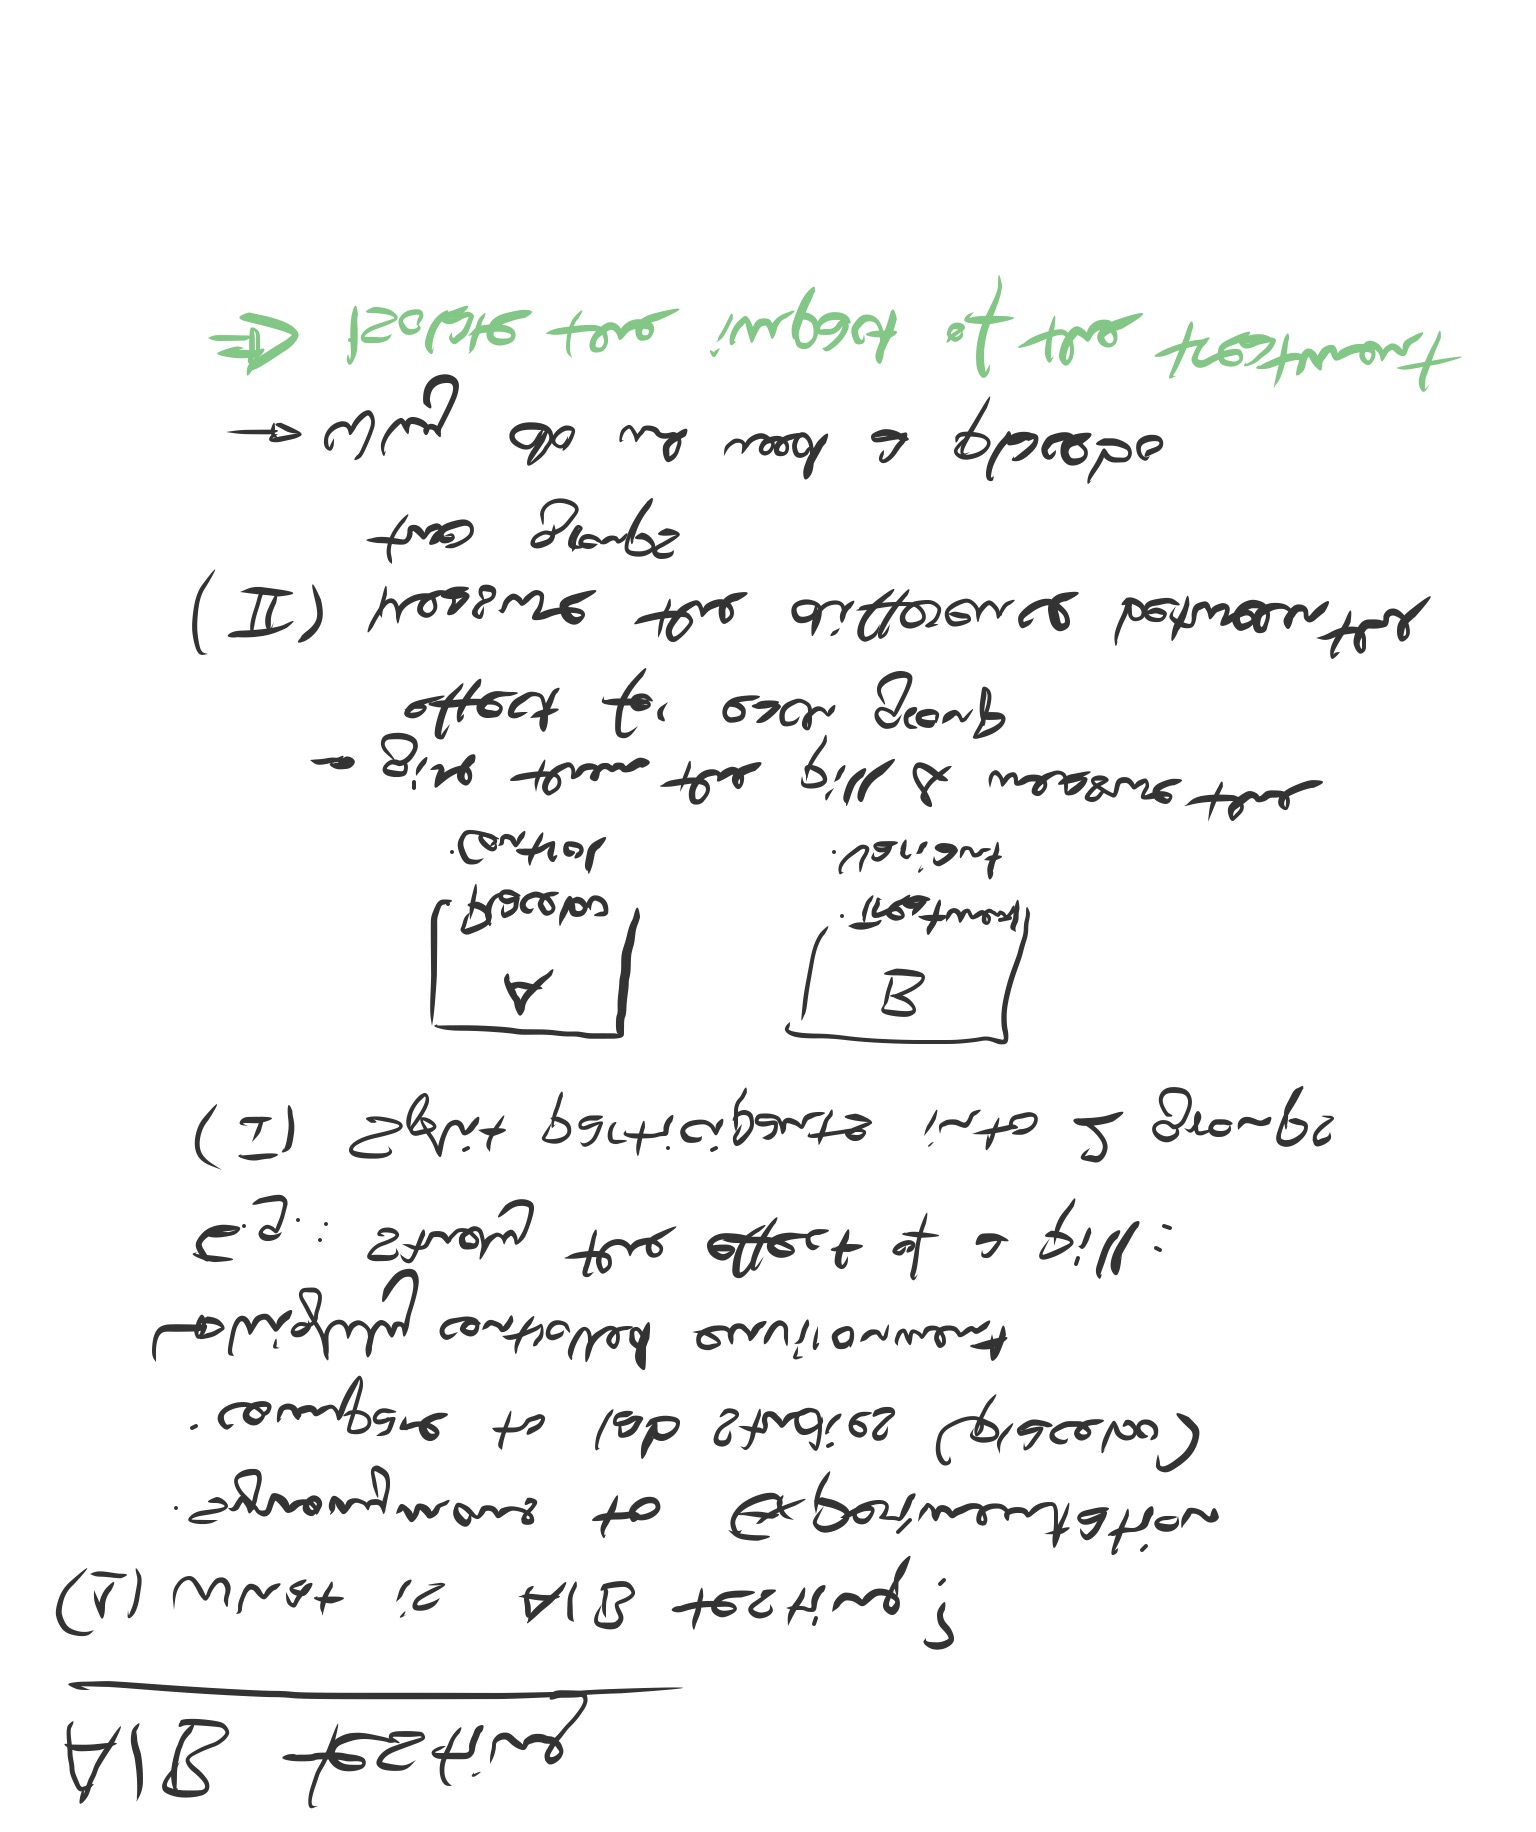 A/B testing
(1) What is A/B testing?
· Synonymous to Experimentation
· compare to lab studies (placebo)
↳ highly controlled environment
E.g.: Study the effect of a pill:
(I) Split participants into 2 groups
A B
Placebo · Treatment
· Control · Variant
→ give them the pill & measure the
effect for each group
(II) Measure the difference between the
two groups
→ Why do we need a placebo
⇒ Isolate the impact of the treatment